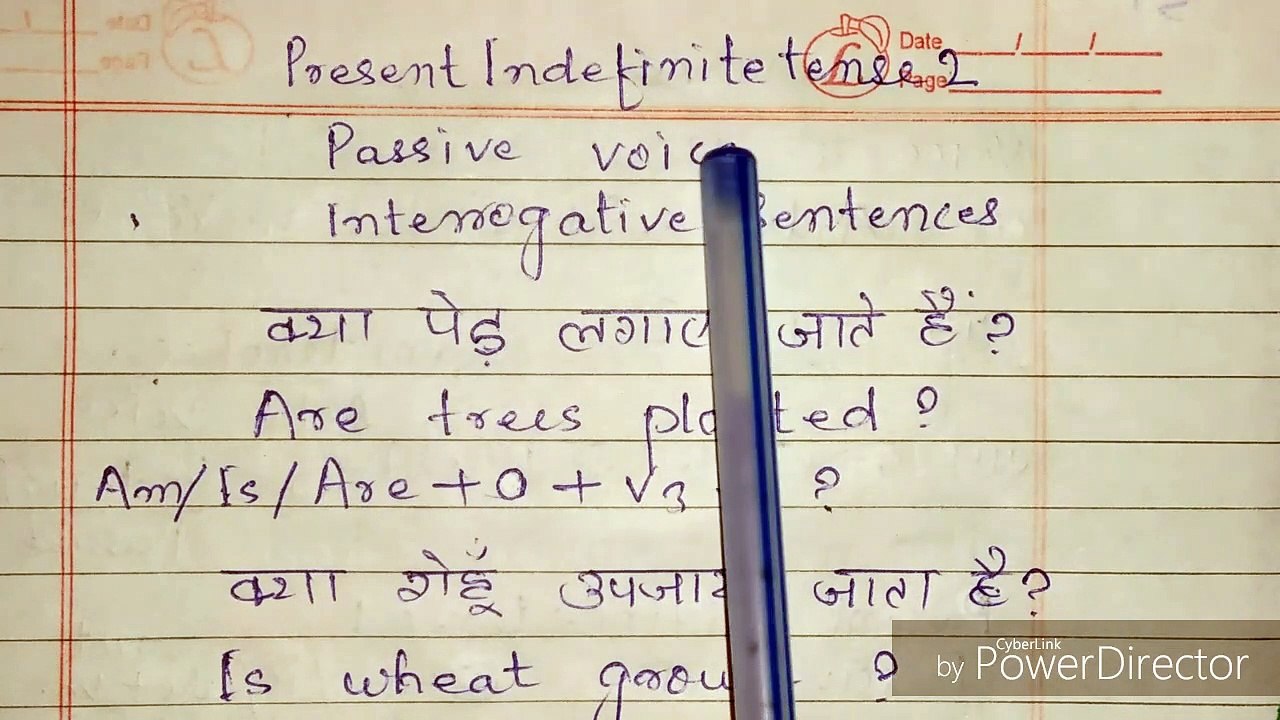 Date / /
Page
Present Indefinite tense 2
Passive
Interrogative Sentences
क्या पेड़ जाते हैं ?
Are trees ?
Am/Is/Are + O + V3 ?
क्या गेहूँ जाता है ?
Is wheat ?
CyberLink
by PowerDirector